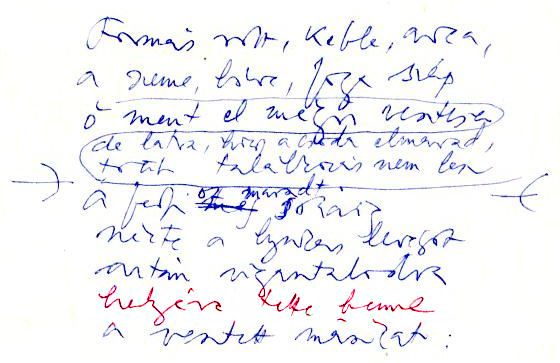 Formás volt, keble, arca,
a szeme, bőre, foga szép
ő ment el mégis vesztesen
de látva, hogy a csoda elmarad,
több találkozás nem lesz
a férfi ott maradt: sokáig
nézte a levegőt
aztán vigasztalódva
helyére tette benne
a vesztett másikat.